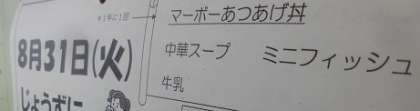 *1年に1回
マーボーあつあげ丼
8月31日(火)
中華スープ ミニフィッシュ
牛乳
じょうずに